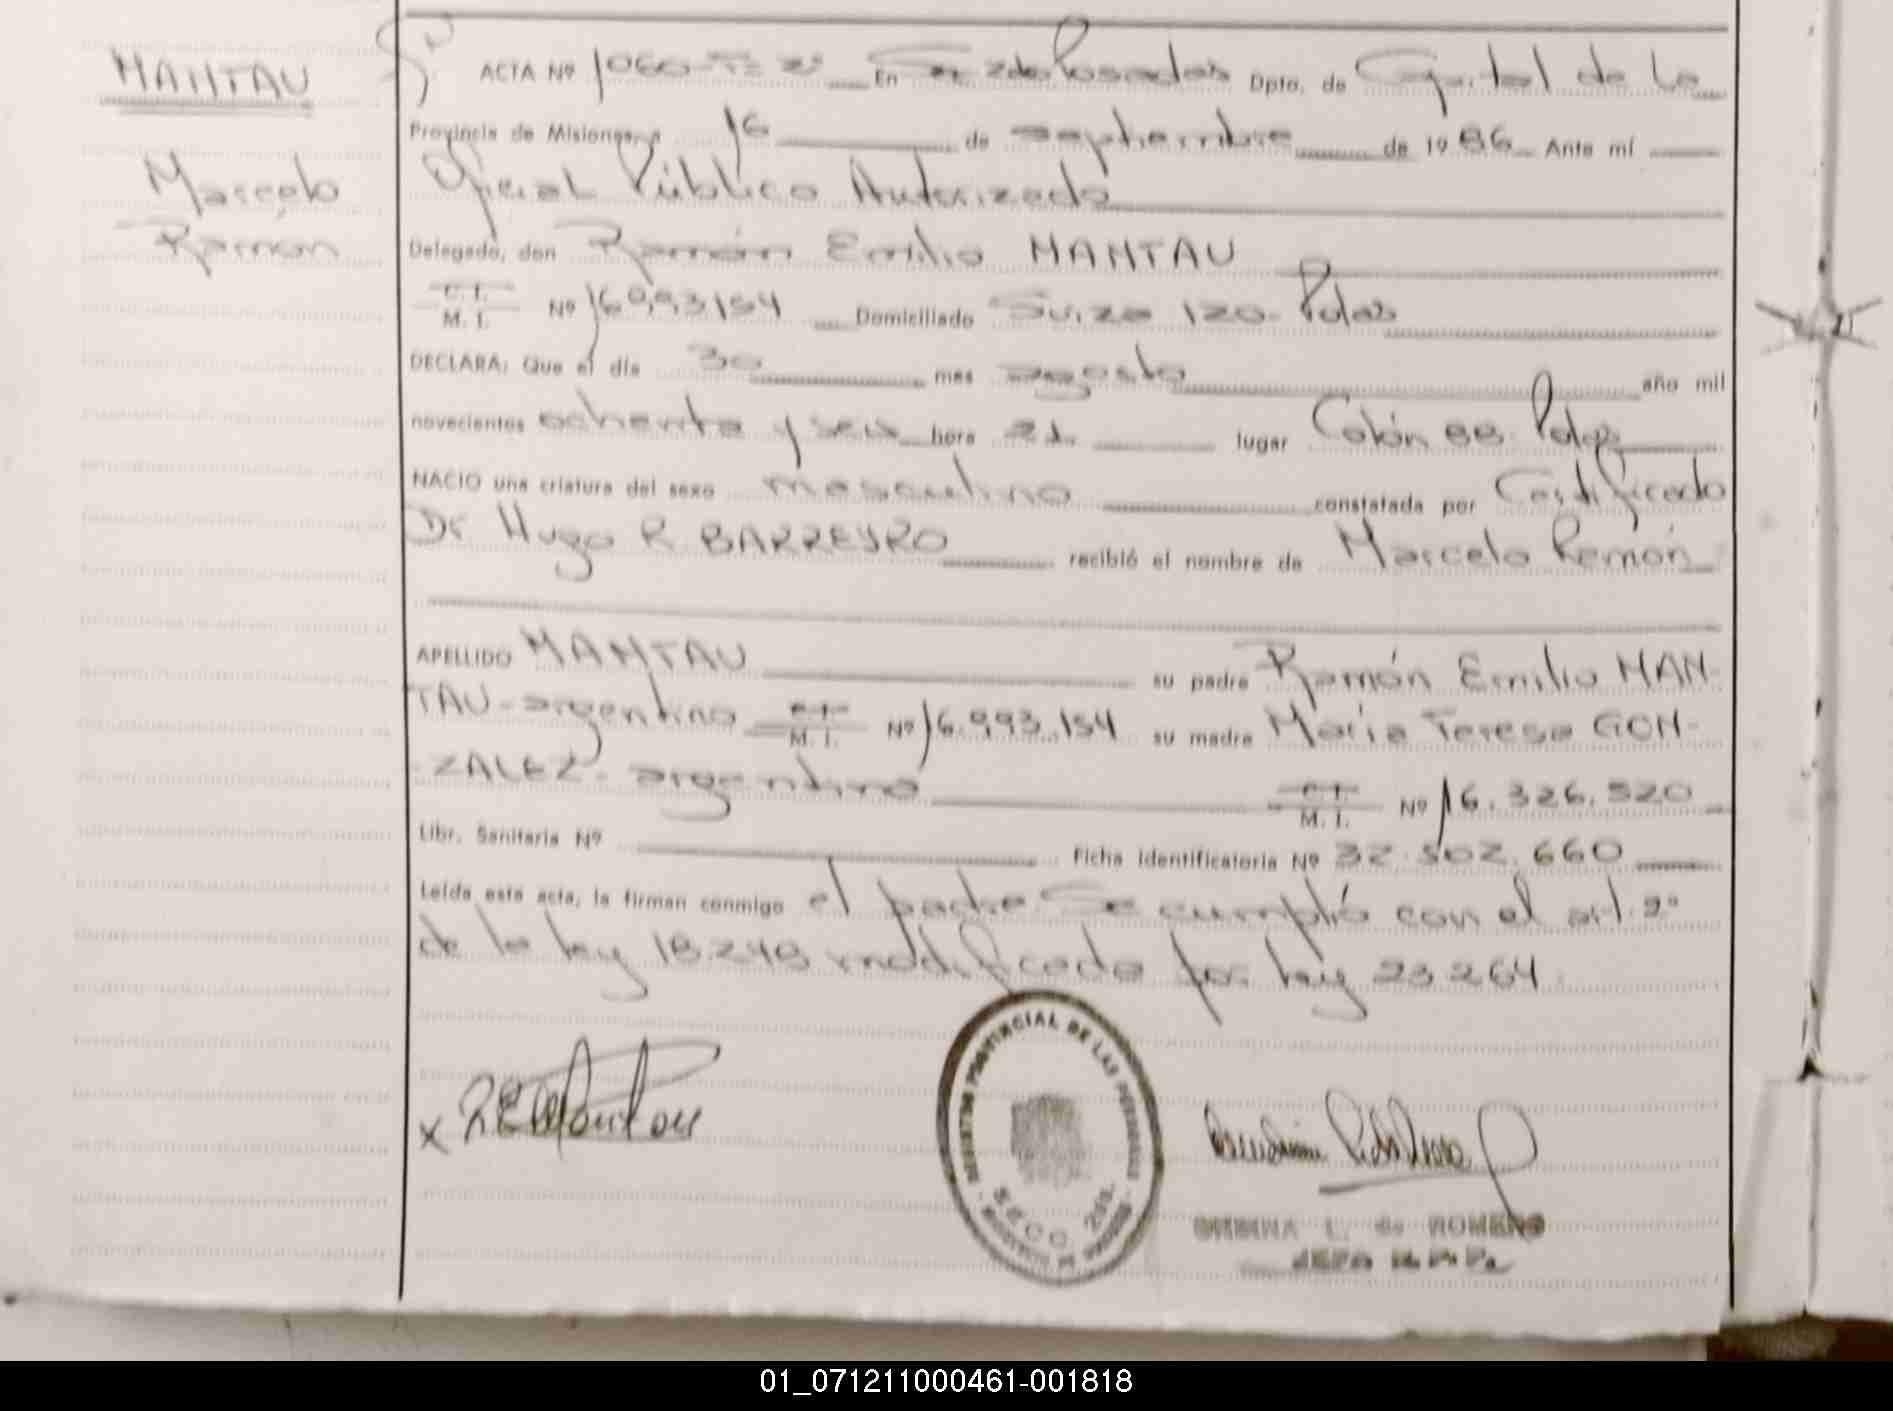 MANTAU
Marcelo
Ramón
ACTA Nº 1060-Tº 2º En Sec 2da Posadas Dpto. de Capital de la
Provincia de Misiones, a 16 de septiembre de 1986 Ante mí
Oficial Público Autorizado
Delegado, don Ramón Emilio MANTAU
C. I.
M. I. Nº 16.993.154 Domiciliado Suiza 120. Pdas
DECLARA: Que el día 30 mes agosto año mil
novecientos ochenta y seis hora 21. lugar Colón 88. Pdas
NACIO una criatura del sexo masculino constatada por Certificado
Dr Hugo R BARREYRO recibió el nombre de Marcelo Ramón
APELLIDO MANTAU su padre Ramón Emilio MAN-
TAU - argentino C. I. M. I. Nº 16.993.154 su madre María Teresa GON-
-ZALEZ - argentina C. I. M. I. Nº 16.326.520
Libr. Sanitaria Nº Ficha Identificatoria Nº 32.502.660
Leída esta acta, la firman conmigo el padre Se cumplió con el art. 2º
de la ley 18.248 modificada por ley 23.264.
REGISTRO PROVINCIAL DE LAS PERSONAS
SECC. 2da.
MISIONES
L. de ROMERO
01_071211000461-001818